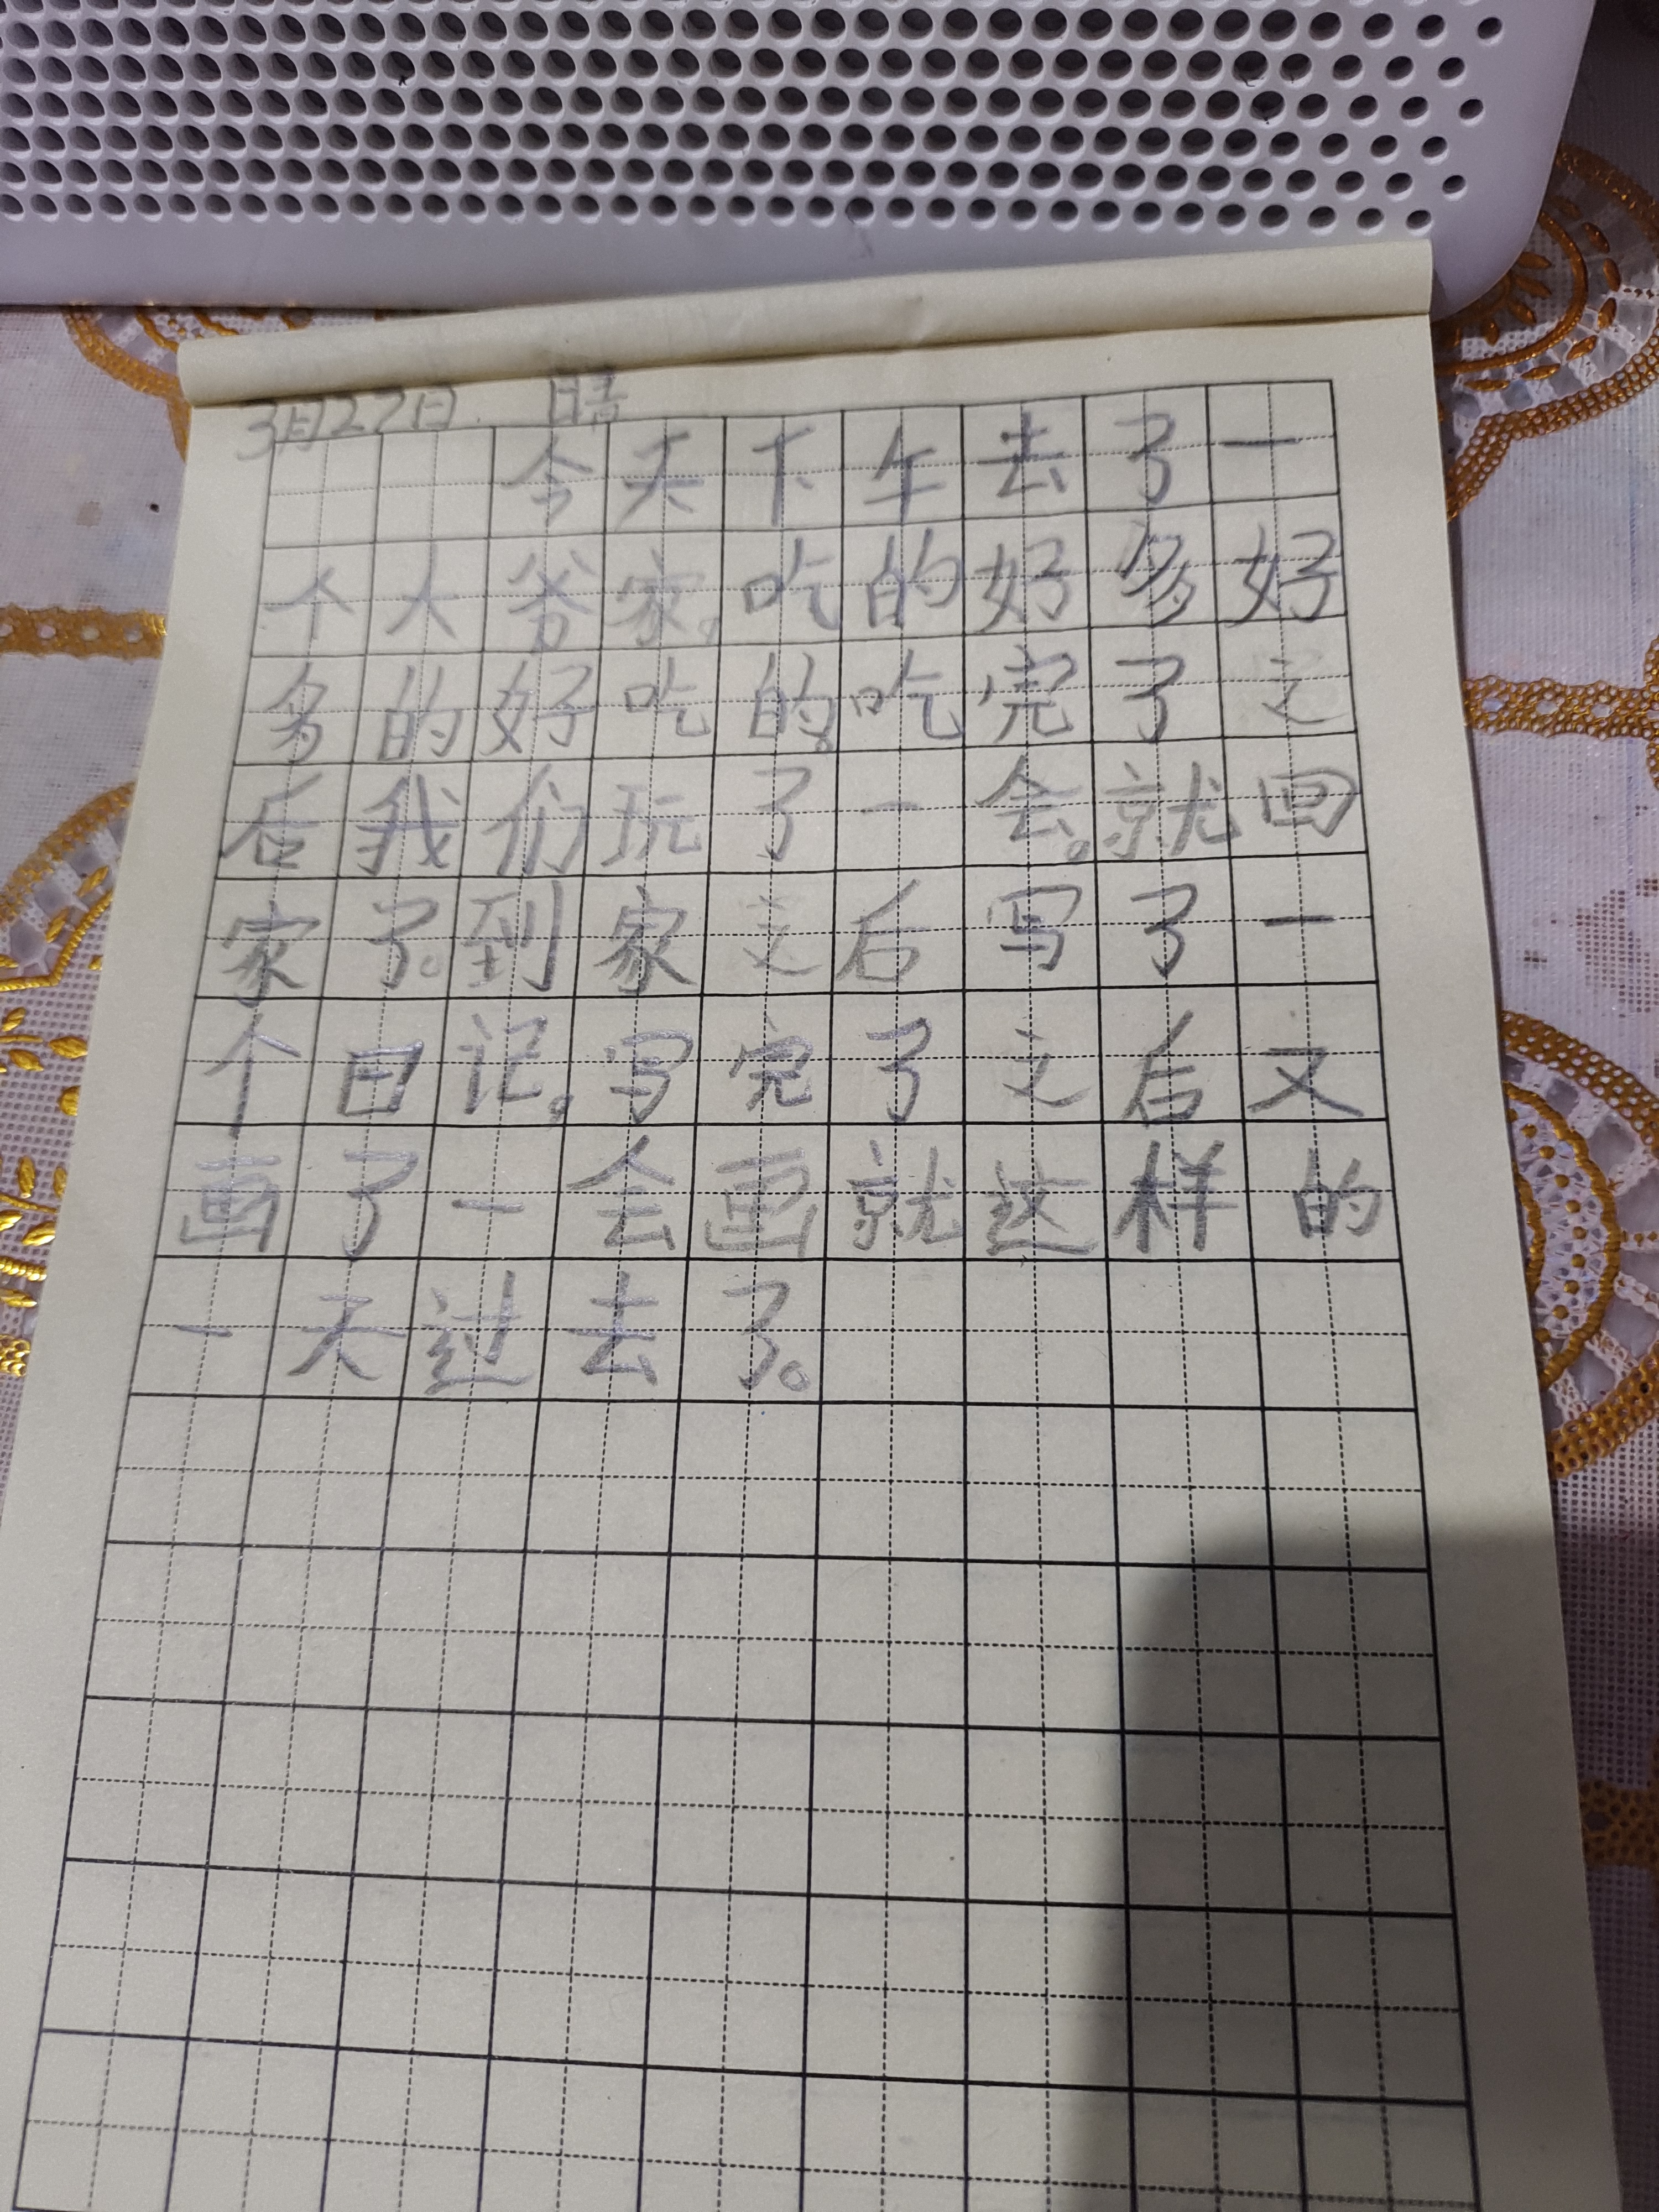 3月27日. 晴
今天下午去了一
个大爷家。吃的好多好
多的好吃的。吃完了之
后我们玩了一会。就回
家了。到家之后写了一
个日记。写完了之后又
画了一会画就这样的
一天过去了。